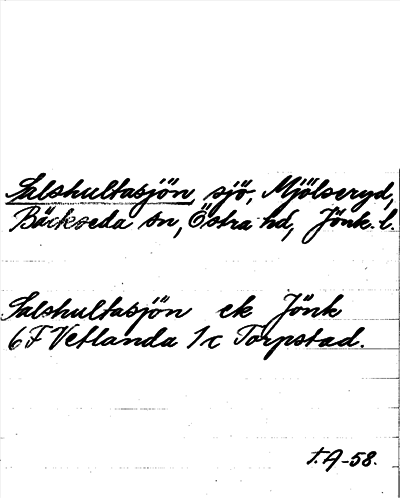 Salshultasjön, sjö, Mjölseryd,
Bäckseda sn, Östra hd, Jönk. l.
Salshultasjön ek Jönk
6F Vetlanda 1c Torpstad.
T.A-58.